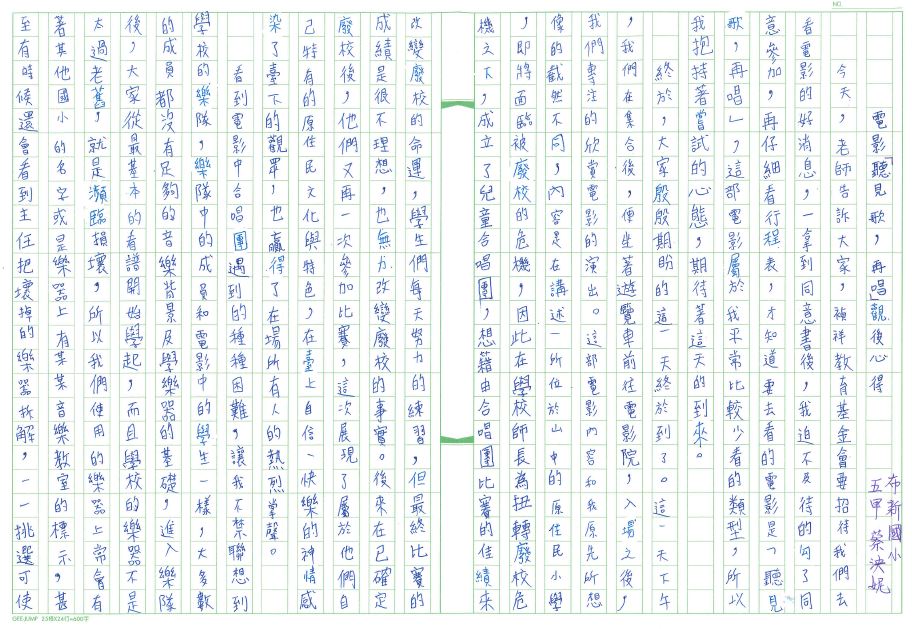 電影「聽見歌，再唱」觀後心得
布新國小
五甲 蔡泱妮
今天，老師告訴大家，禎祥教育基金會要招待我們去
看電影的好消息，一拿到同意書後，我迫不及待的勾了同
意參加，再仔細看行程表，才知道要去看的電影是「聽見
歌，再唱」，這部電影屬於我平常比較少看的類型，所以
我抱持著嘗試的心態，期待著這天的到來。
終於，大家殷殷期盼的這一天終於到了。這一天下午
，我們在集合後，便坐著遊覽車前往電影院，入場之後，
我們專注的欣賞電影的演出。這部電影內容和我原先所想
像的截然不同，內容是在講述一所位於山中的原住民小學
，即將面臨被廢校的危機，因此在學校師長為扭轉廢校危
機之下，成立了兒童合唱團，想藉由合唱團比賽的佳績來
改變廢校的命運，學生們每天努力的練習，但最終比賽的
成績是很不理想，也無力改變廢校的事實。後來在已確定
廢校後，他們又再一次參加比賽，這次展現了屬於他們自
己特有的原住民文化與特色，在臺上自信、快樂的神情感
染了臺下的觀眾，也贏得了在場所有人的熱烈掌聲。
看到電影中合唱團遇到的種種困難，讓我不禁聯想到
學校的樂隊，樂隊中的成員和電影中的學生一樣，大多數
的成員都沒有足夠的音樂背景及學樂器的基礎，進入樂隊
後，大家從最基本的看譜開始學起，而且學校的樂器不是
太過老舊，就是瀕臨損壞，所以我們使用的樂器上常會有
著其他國小的名字或是樂器上有某某音樂教室的標示，甚
至有時候還會看到主任把壞掉的樂器拆解，一一挑選可使
NO.
GEEJUMP 25格X24行=600字